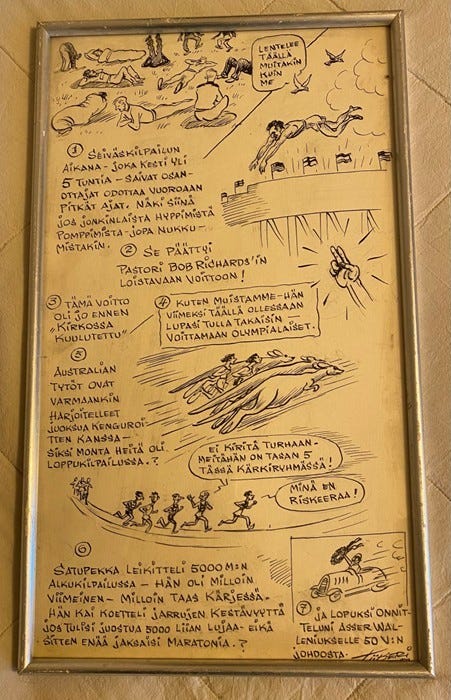 LENTELEE
TÄÄLLÄ
MUITAKIN
KUIN
ME
① SEIVÄSKILPAILUN
AIKANA – JOKA KESTI YLI
5 TUNTIA – SAIVAT OSAN-
OTTAJAT ODOTTAA VUOROAAN
PITKÄT AJAT. NÄKI SIINÄ
JOS JONKINLAISTA HYPPIMISTÄ
POMPPIMISTA – JOPA NUKKU-
MISTAKIN.
② SE PÄÄTTYI
PASTORI BOB RICHARDS'IN
LOISTAVAAN VOITTOON!
③ TÄMÄ VOITTO
OLI JO ENNEN
"KIRKOSSA
KUULUTETTU"
④ KUTEN MUISTAMME – HÄN
VIIMEKSI TÄÄLLÄ OLLESSAAN
LUPASI TULLA TAKAISIN –
VOITTAMAAN OLYMPIALAISET.
⑤
AUSTRALIAN
TYTÖT OVAT
VARMAANKIN
HARJOITELLEET
JUOKSUA KENGUROI-
TTEN KANSSA –
SIKSI MONTA HEITÄ OLI
LOPPUKILPAILUSSA.?
EI KIRITÄ TURHAAN –
MEITÄHÄN ON TASAN 5
TÄSSÄ KÄRKIRYHMÄSSÄ!
MINÄ EN
RISKEERAA!
⑥
SATUPEKKA LEIKITTELI 5000 M:N
ALKUKILPAILUSSA – HÄN OLI MILLOIN
VIIMEINEN – MILLOIN TAAS KÄRJESSÄ.
HÄN KAI KOETTELI JARRUJEN KESTÄVYYTTÄ
JOS TULISI JUOSTUA 5000 LIIAN LUJAA – EIKÄ
SITTEN ENÄÄ JAKSAISI MARATONIA.?
⑦ JA LOPUKSI ONNIT-
TELUNI ASSER WAL-
LENIUKSELLE 50 V:N
JOHDOSTA.